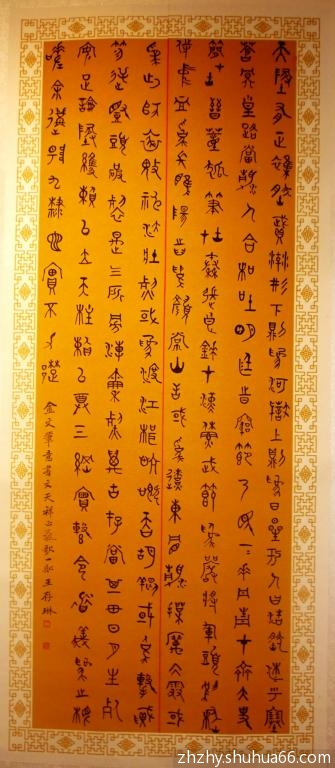 天地有正氣雜然賦流形下則為河嶽上則為日星於人曰浩然沛乎塞
蒼冥皇路當清夷含和吐明庭時窮節乃見一一垂丹青在齊太史
簡在晉董狐筆在秦張良椎在漢蘇武節為嚴將軍頭為嵇侍
中血為張睢陽齒為顏常山舌或為遼東帽清操厲冰雪或
為出師表鬼神泣壯烈或為渡江楫慷慨吞胡羯或為擊賊
笏逆豎頭破裂是氣所磅礴凜烈萬古存當其貫日月生死
安足論地維賴以立天柱賴以尊三綱實繫命道義為之根
嗟余遘陽九隸也實不力
金文筆意書文天祥正氣歌 王存琳
zhzhy.shuhua66.com